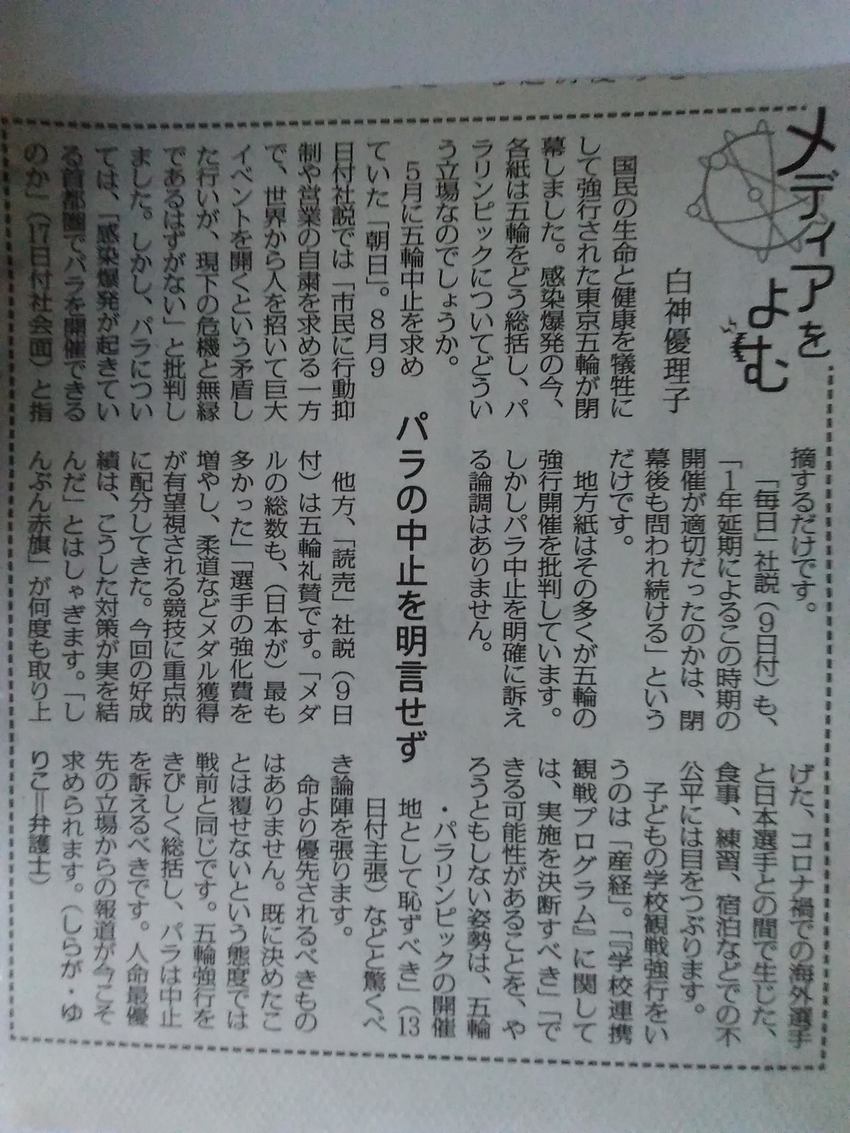 メディアを
よむ
白神優理子
国民の生命と健康を犠牲に
して強行された東京五輪が閉
幕しました。感染爆発の今、
各紙は五輪をどう総括し、パ
ラリンピックについてどうい
う立場なのでしょうか。
５月に五輪中止を求め
ていた「朝日」。８月９
日付社説では「市民に行動抑
制や営業の自粛を求める一方
で、世界から人を招いて巨大
イベントを開くという矛盾し
た行いが、現下の危機と無縁
であるはずがない」と批判し
ました。しかし、パラについ
ては、「感染爆発が起きてい
る首都圏でパラを開催できる
のか」（17日付社会面）と指
摘するだけです。
「毎日」社説（９日付）も、
「１年延期によるこの時期の
開催が適切だったのかは、閉
幕後も問われ続ける」という
だけです。
地方紙はその多くが五輪の
強行開催を批判しています。
しかしパラ中止を明確に訴え
る論調はありません。
パラの中止を明言せず
他方、「読売」社説（９日
付）は五輪礼賛です。「メダ
ルの総数も、（日本が）最も
多かった」「選手の強化費を
増やし、柔道などメダル獲得
が有望視される競技に重点的
に配分してきた。今回の好成
績は、こうした対策が実を結
んだ」とはしゃぎます。「し
んぶん赤旗」が何度も取り上
げた、コロナ禍での海外選手
と日本選手との間で生じた、
食事、練習、宿泊などでの不
公平には目をつぶります。
子どもの学校観戦強行をい
うのは「産経」。「『学校連携
観戦プログラム』に関して
は、実施を決断すべき」「で
きる可能性があることを、や
ろうともしない姿勢は、五輪
・パラリンピックの開催
地として恥ずべき」（13
日付主張）などと驚くべ
き論陣を張ります。
命より優先されるべきもの
はありません。既に決めたこ
とは覆せないという態度では
戦前と同じです。五輪強行を
きびしく総括し、パラは中止
を訴えるべきです。人命最優
先の立場からの報道が今こそ
求められます。（しらが・ゆ
りこ＝弁護士）